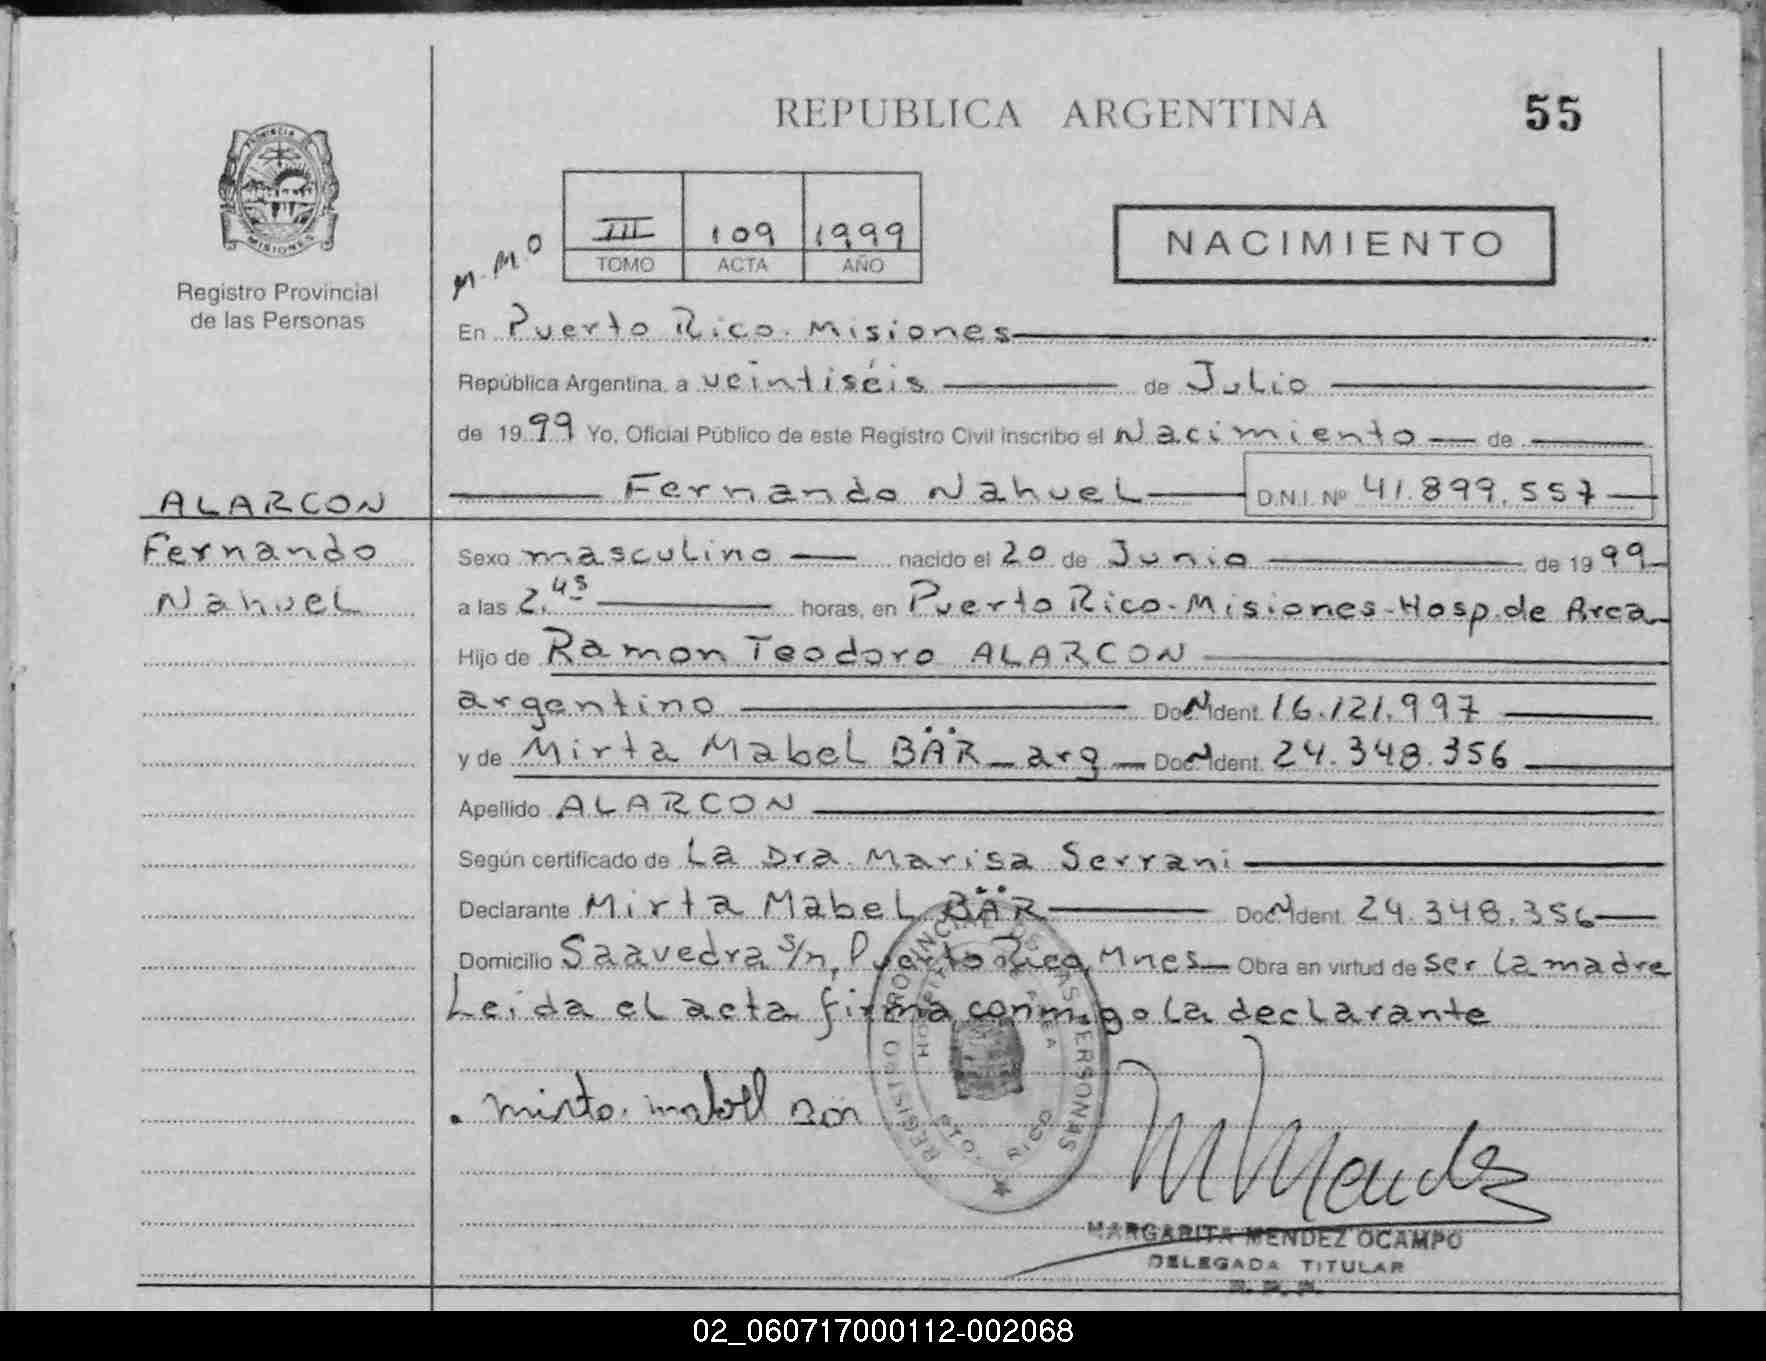 REPUBLICA ARGENTINA
55
PROVINCIA
MISIONES
Registro Provincial
de las Personas
M.M.O
III 109 1999
TOMO ACTA AÑO
NACIMIENTO
En Puerto Rico. Misiones
República Argentina, a veintiséis de Julio
de 1999 Yo, Oficial Público de este Registro Civil inscribo el Nacimiento de
Fernando Nahuel D.N.I. Nº 41.899.557
ALARCON
Fernando
Nahuel
Sexo masculino nacido el 20 de Junio de 1999
a las 2,45 horas, en Puerto Rico-Misiones-Hosp.de Area
Hijo de Ramon Teodoro ALARCON
argentino Doc Ident. 16.121.997
y de Mirta Mabel BÄR - arg Doc Ident. 24.348.356
Apellido ALARCON
Según certificado de La Dra. Marisa Serrani
Declarante Mirta Mabel BÄR Doc Ident. 24.348.356
Domicilio Saavedra s/n, Puerto Rico, Mnes Obra en virtud de ser la madre
Leida el acta firma conmigo la declarante
REGISTRO PROVINCIAL DE LAS PERSONAS
HOSPITAL DE AREA
PTO. RICO
MARGARITA MENDEZ OCAMPO
DELEGADA TITULAR
R. P. P.
02_060717000112-002068